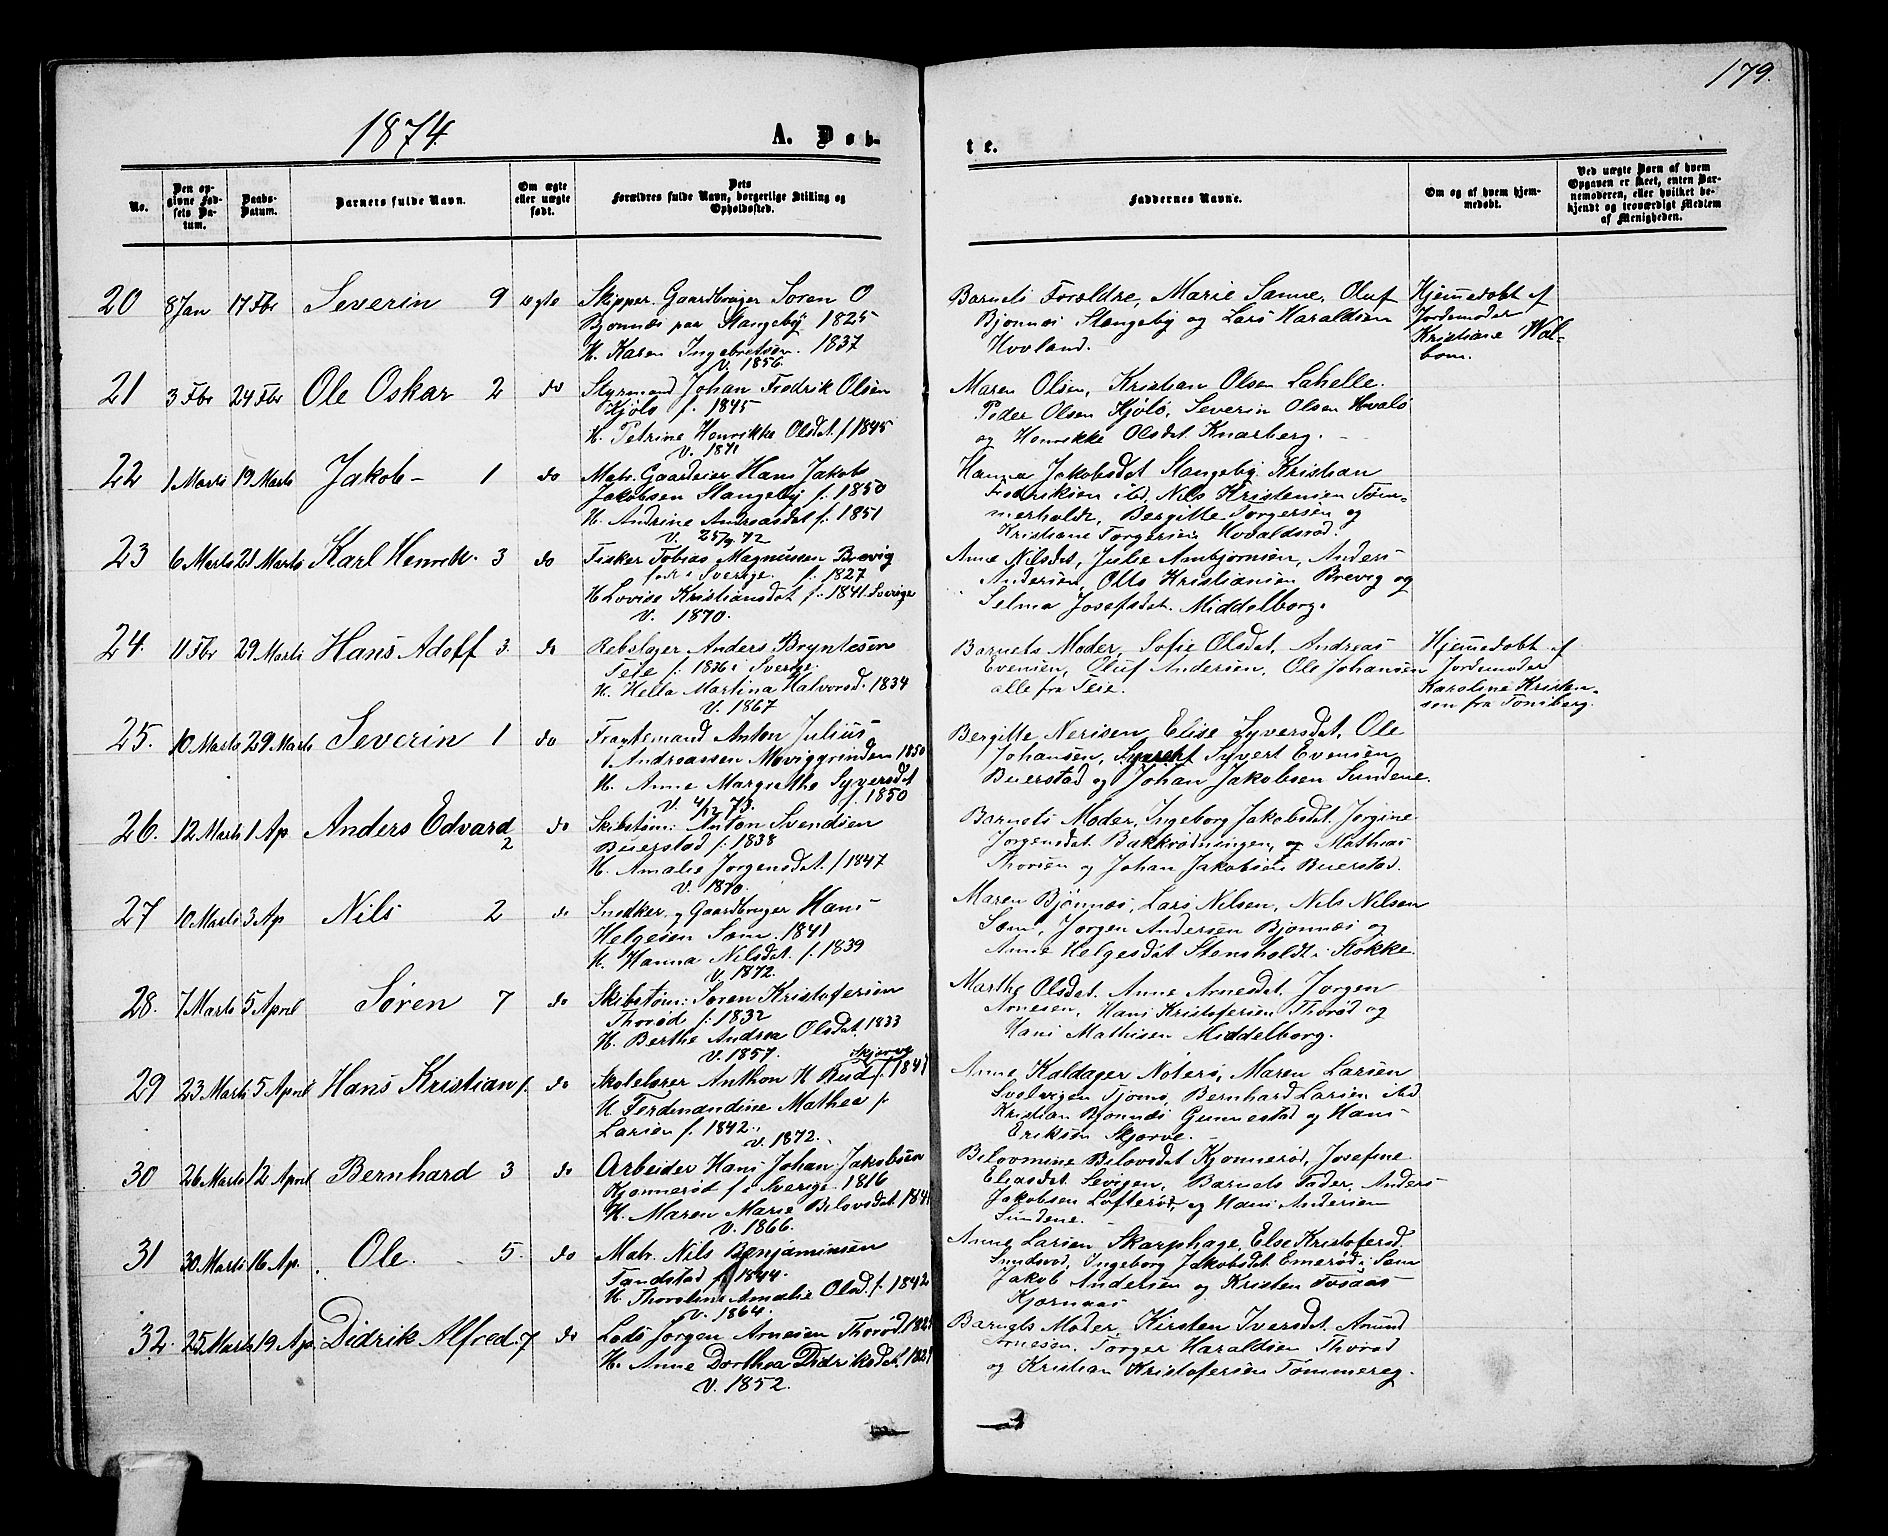 179.
1874.
A. Døb-
te.
No.
Den opgivne Fødsels Datum.
Daabs-Datum.
Barnets fulde Navn.
Om ægte eller uægte født.
Dets Forældres fulde Navn, borgerlige Stilling og Opholdssted.
Faddernes Navne.
Om og af hvem hjemmedøbt.
Ved uægte Børn af hvem Opgaven er skeet, enten Barnemoderen, eller hvilket bekjendt og troværdigt Medlem af Menigheden.
20 8 Jan 17 Fbr Severin 9 ægte
Skipper. Gaardbruger Søren O
Bjønnæs paa Stangeby 1825
H. Karen Ingebretsen. 1837
V. 1856.
Barnets Forældre, Marie Sanne, Oluf
Bjønnæs Stangeby og Lars Haraldsen
Hovland.
Hjemmedøbt af
Jordemoder
Kristiane Wal-
bom.
21 3 Fbr 24 Fbr Ole Oskar 2 do
Styrmand Johan Fredrik Olsen
Kjøls f. 1845
H. Petrine Henrikke Olsdat. f 1845
V. 1871
Maren Olsen, Kristian Olsen Lahelle.
Peder Olsen Kjøls, Severin Olsen Hvalø
og Henrikke Olsdat. Knarberg. -
22 1 Marts 19 Marts Jakob - 1 do
Matr. Gaardeier Hans Jakob
Jakobsen Stangeby f. 1850
H. Andrine Andreasdat f. 1851
V. 25/9 72
Hanna Jakobsdat Stangeby Kristian
Fredriksen ibd. Nils Kristensen Tøm-
merholdt, Bergitte Torgersen og
Kristiane Torgersen Hovaldsrød.
23 6 Marts 21 Marts Karl Henrik. 3 do
Fisker Tobias Magnussen Brevig
født i Sverige f. 1827
H. Lovise Kristiansdat f. 1841. Sverige
V. 1870.
Anne Nilsdat, Julie Ambjørnsen, Anders
Andersen, Otto Kristiansen Brevig og
Selma Josefsdat. Middelborg.
24. 11 Fbr 29 Marts Hans Adolf 3. do
Rebslager Anders Bryntesen
Teie f. 1836 i Sverige.
H. Helta Martina Halvorsd. 1834
V. 1867
Barnets Moder, Sofie Olsdat, Andreas
Evensen, Oluf Andersen, Ole Johansen
alle fra Teie.
Hjemmedøbt af
Jordemoder
Karoline Kristen-
sen fra Tønsberg.
25. 10 Marts 29 Marts Severin 1 do
Fragtemand Anton Julius
Andreassen Moviggrinden 1850
H. Anne Margrethe Syversdat
V. 4/12 73. f. 1850
Bergitte Nerisen, Elise Syversdat, Ole
Johansen, Syvert Evensen
Buerstad og Johan Jakobsen Sundene.
26. 12 Marts 1 Ap. Anders Edvard 2 do
Skibstøm: Anton Svendsen
Buerstad f. 1838
H. Amalie Jørgensdat. f 1847
V. 1870.
Barnets Moder, Ingeborg Jakobsdat. Jørgine
Jørgensdat. Bakkrødningen, og Mathias
Thorsen og Johan Jakobsen Buerstad.
27 10 Marts 3 Ap Nils 2 do
Snedker og Gaardbruger Hans
Helgesen Sem. 1841
H. Hanna Nilsdat. f. 1839
V. 1872.
Maren Bjønnæs, Lars Nilsen, Nils Nilsen
Sem, Jørgen Andersen Bjønnæs og
Anne Helgesdat Stensholdt i Stokke.
28. 7 Marts 5 April Søren 7 do
Skibstøm: Søren Kristofersen
Thorød f. 1832
H. Berthe Andrea Olsdat 1833
V. 1857.
Marthe Olsdat. Anne Arnesdat. Jørgen
Arnesen, Hans Kristofersen Thorød og
Hans Mathisen Middelborg.
29 23 Marts 5 April Hans Kristian 1. do
Skolelærer Anthon H Bud f. 1841
Skjerve
H Ferdinandine Mathea f.
Larsen f. 1842.
V. 1872.
Anne Kaldager Nøterø, Maren Larsen
Solvigen Tjømø, Bernhard Larsen ibd
Kristian Bjønnæs Gunnestad og Hans
Eriksen Skjerve. -
30 26 Marts 12 April Bernhard 3 do
Arbeider Hans Johan Jakobsen
Kjønnerød f. i Sverige. 1816
H. Maren Marie Bilovsdat. 1841
V. 1866.
Bilovmine Bilovsdat Kjønnerød, Josefine
Eliasdat. Sevigen, Barnets Fader, Anders
Jakobsen Lofterød, og Hans Andersen
Sundene.
31 30 Marts 16 Ap. Ole. 5. do
Matr. Nils Benjaminsen
Tandstad f. 1844.
H. Thoroline Amalie Olsd. f. 1842
V. 1864.
Anne Larsen Skarphage, Else Kristofersd.
Smidsrød, Ingeborg Jakobsdat. Emerød i Sem
Jakob Andersen og Kristen Tusaas
Kjærnaas
32. 25 Marts 19 Ap. Didrik Alfred. 7 do
Lods Jørgen Arnesen Thorød.
H. Anne Dorthea Didriksdat.
V. 1852.
Barnets Moder, Kirsten Iversdat. Amund
Arnesen. Torger Haraldsen Thorød
og Kristian Kristofersen Tømmereg.